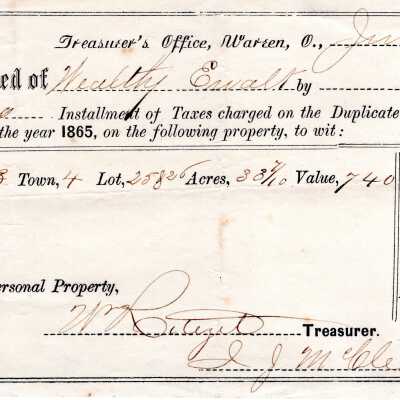 Treasurer's Office, Warren, O., Jun
ed of Wealthy Ewalt by
Installment of Taxes charged on the Duplicate
the year 1865, on the following property, to wit:
3 Town, 4 Lot, 25 & 26 Acres, 33 7/10 Value, 740
ersonal Property,
Treasurer.